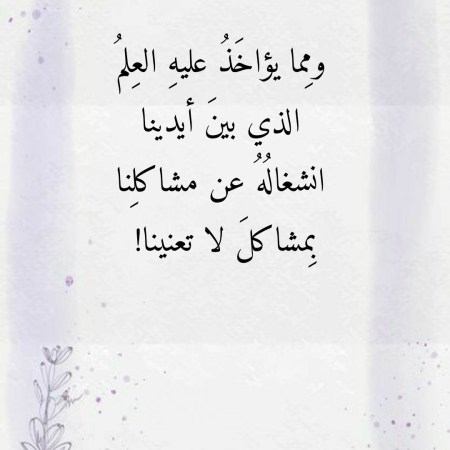 ومِما يؤاخَذُ عليهِ العِلمُ
الذي بينَ أيدينا
انشغالُهُ عن مشاكلِنا
بِمشاكلَ لا تعنينا!